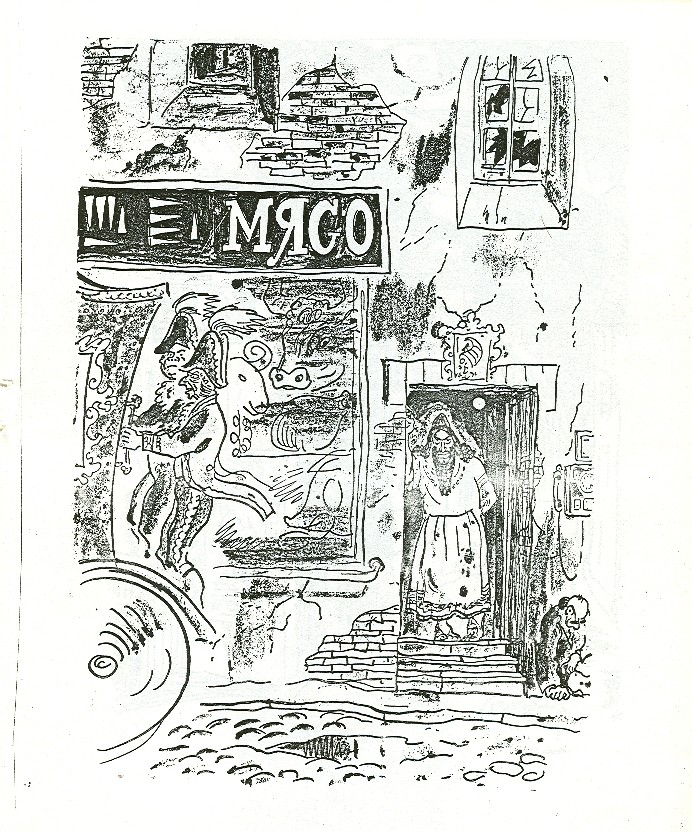 МЯСО